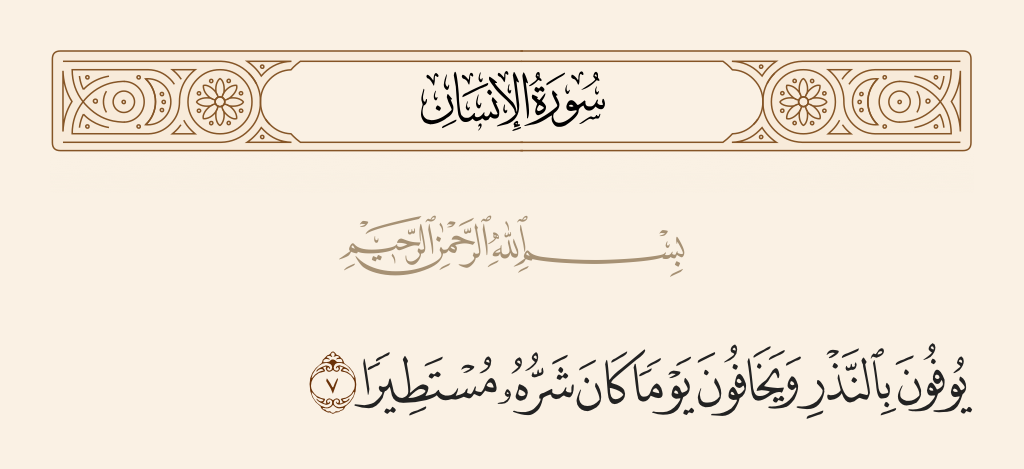 سُورَةُ الإِنسَانِ
بِسْمِ ٱللَّهِ ٱلرَّحْمَٰنِ ٱلرَّحِيمِ
يُوفُونَ بِٱلنَّذْرِ وَيَخَافُونَ يَوْمًا كَانَ شَرُّهُۥ مُسْتَطِيرًا ٧